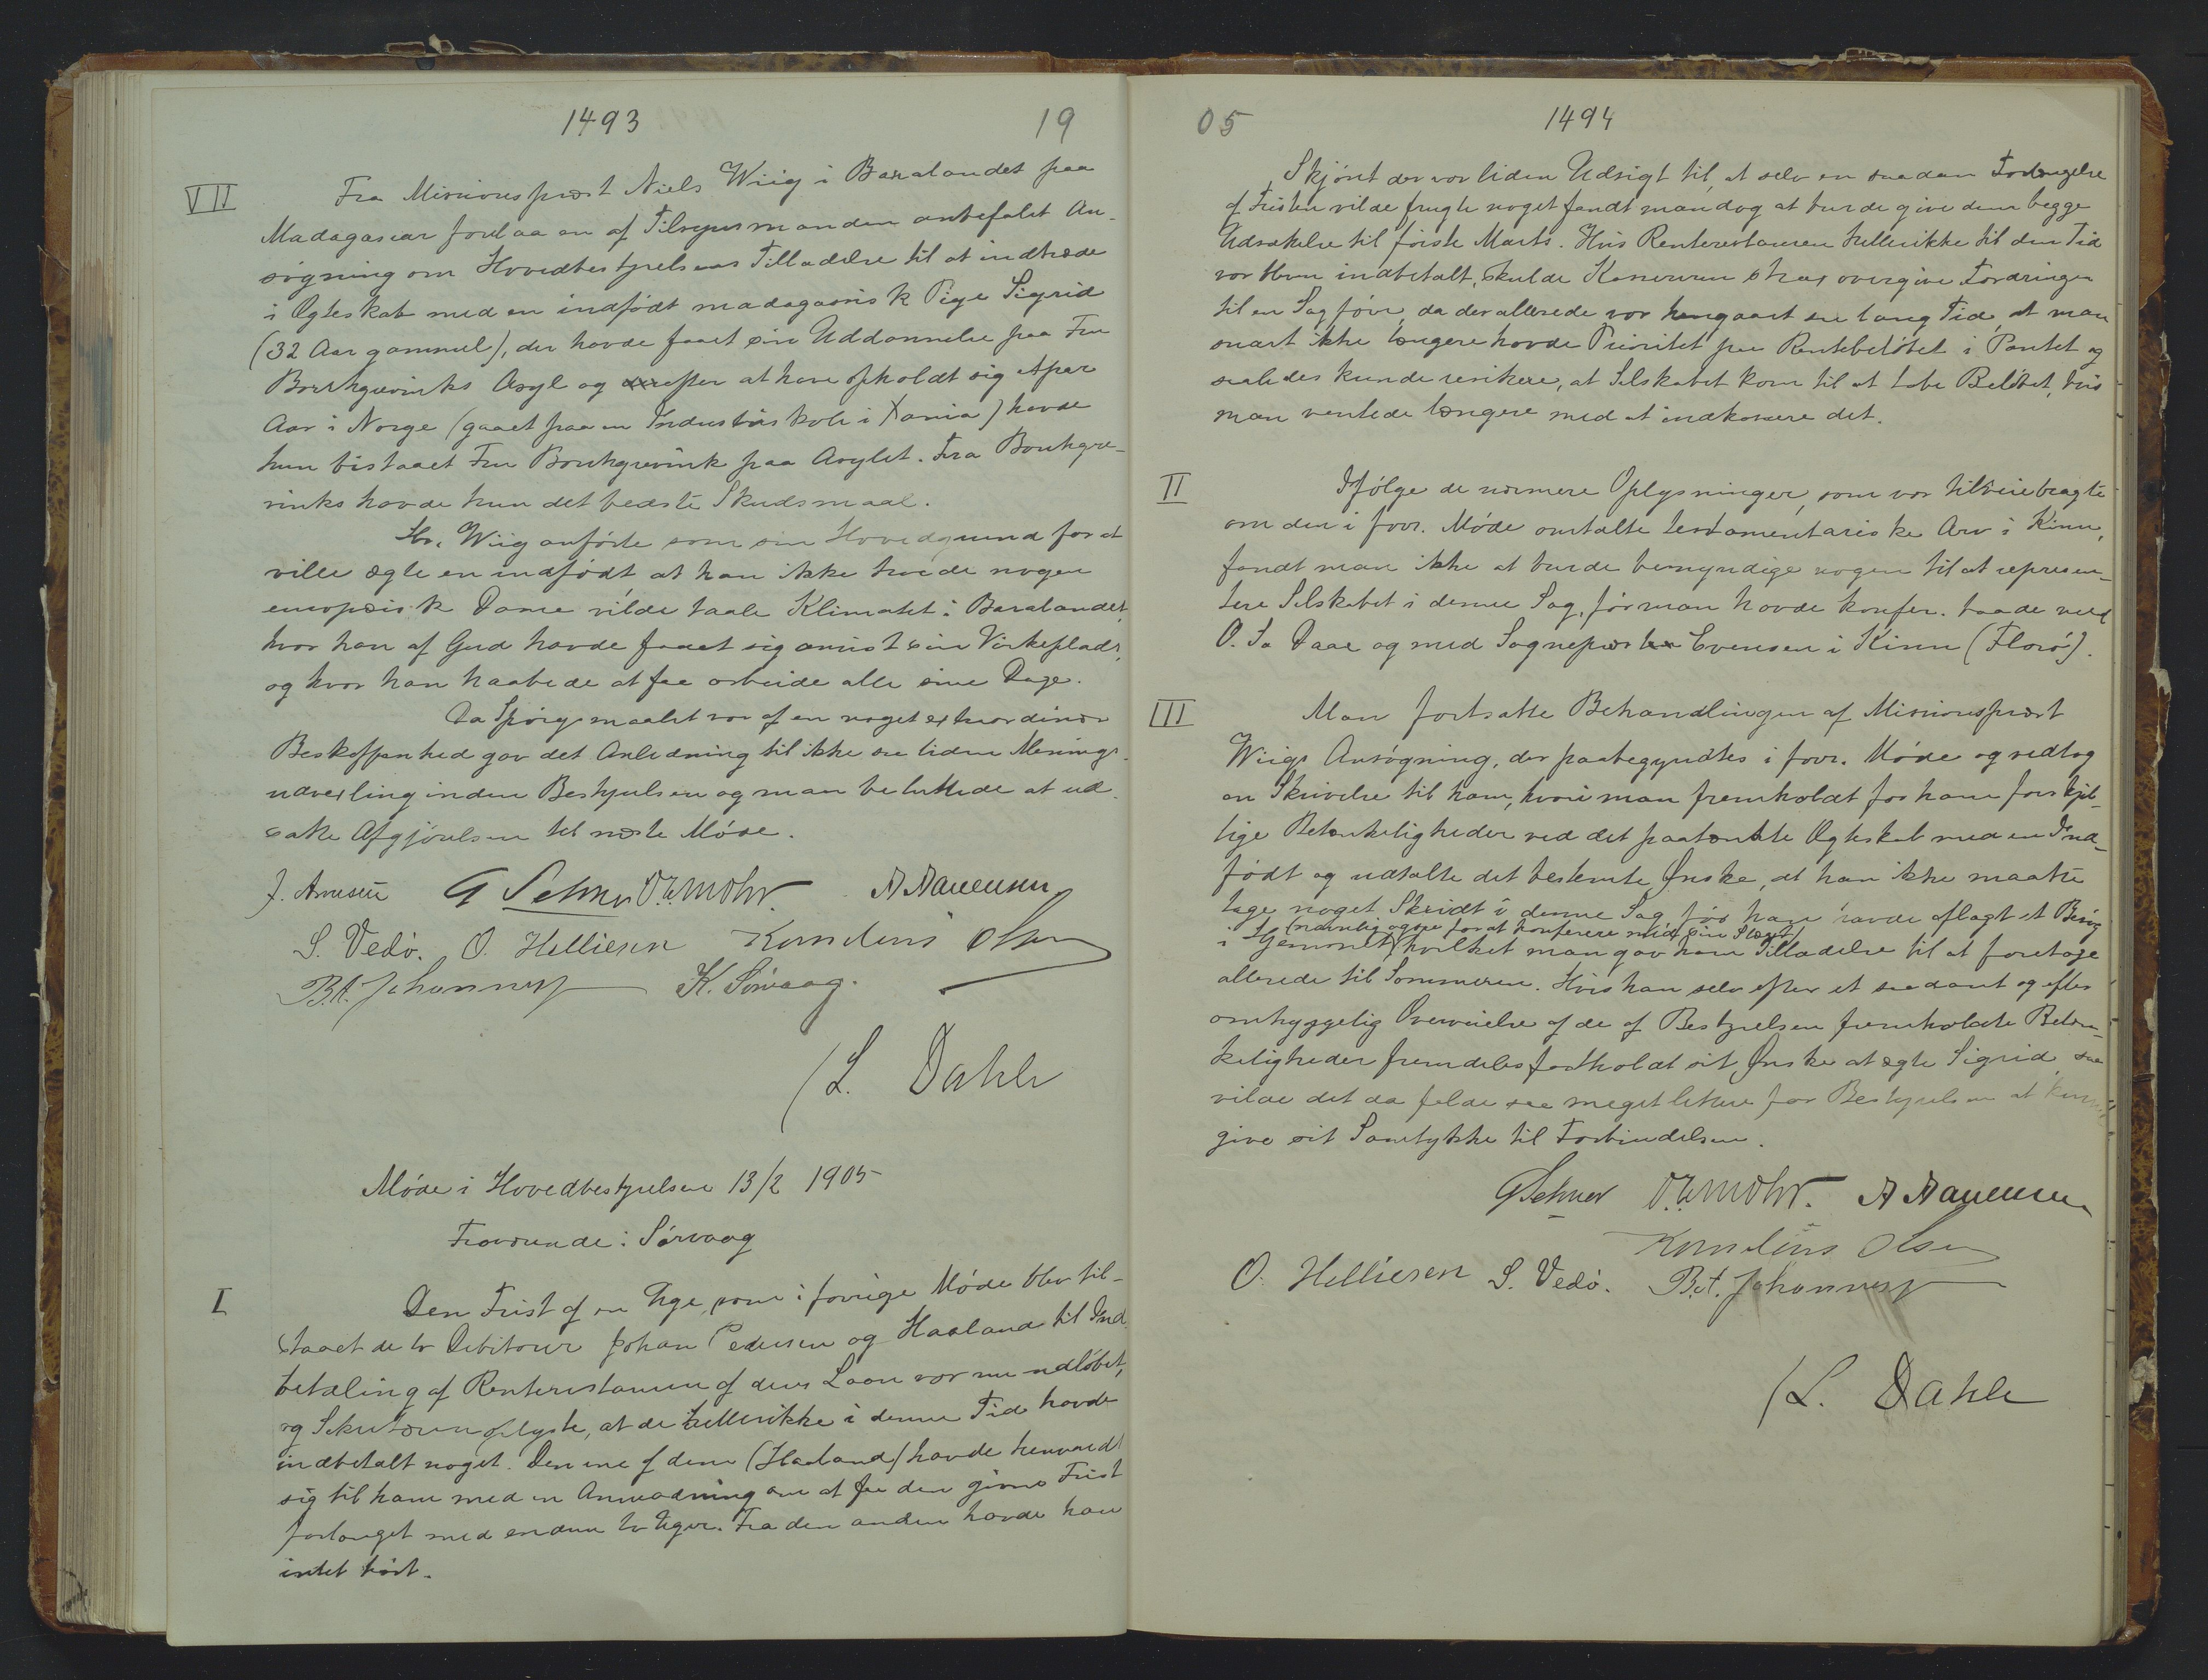 1493
19
VII
Fra Missionspræst Niels Wiig i Baralandet paa
Madagascar forelaa en af Tilsynsmanden anbefalet An-
søgning om Hovedbestyrelsens Tilladelse til at indtræde
i Ægteskab med en indfødt madagassisk Pige Sigrid
(32 Aar gammel), der havde faaet sin Uddannelse paa Fru
Borchgrevinks Asyl og efter at have opholdt sig et par
Aar i Norge (gaaet paa en Industriskole i Xania) havde
hun bistaaet Fru Borchgrevink paa Asylet. Fra Borchgre-
vinks havde hun det bedste Skudsmaal.
Hr. Wiig anførte som sin Hovedgrund for at
ville ægte en indfødt, at han ikke troede nogen
europæisk Dame vilde taale Klimatet i Baralandet,
hvor han af Gud havde faaet sig anvist sin Virkeplads,
og hvor han haabede at faa arbeide alle sine Dage.
Da Spørgsmaalet var af en noget extraordinær
Beskaffenhed gav det Anledning til ikke saa liden Menings-
udvexling inden Bestyrelsen og man besluttede at ud-
sætte Afgjørelsen til næste Møde.
J. Arnesen G Selmer O. Z. Mohr. A Aanensen
S. Vedø. O. Helliesen Kornelius Olsen
B.A. Johannessen K. Sørvaag.
/L. Dahle
Møde i Hovedbestyrelsen 13/2 1905
Fraværende: Sørvaag
I
Den Frist af en Uge, som i forrige Møde blev til-
staaet de to Debitorer Johan Pedersen og Haaland til Ind-
betaling af Renterestancen af deres Laan var nu udløbet,
og Sekretæren oplyste, at de hellerikke i denne Tid havde
indbetalt noget. Den ene af dem (Haaland) havde henvendt
sig til ham med en Anmodning om at faa den givne Frist
forlænget med endnu to Uger. Fra den anden havde han
intet hørt.
05
1494
Skjønt der var liden Udsigt til, at selv en saadan Forlængelse
af Fristen vilde frugte noget fandt man dog at burde give dem begge
Udsættelse til første Marts. Hvis Renterestancen hellerikke til den Tid
var bleven indbetalt, skulde Kassereren strax overgive Fordringen
til en Sagfører, da der allerede var hengaaet saa lang Tid, at man
snart ikke længere havde Prioritet paa Rentebeløbet i Pantet og
saaledes kunde risikere, at Selskabet kom til at tabe Beløbet, hvis
man ventede længere med at indkassere det.
II
Ifølge de nærmere Oplysninger, som var tilveiebragte
om den i forr. Møde omtalte testamentariske Arv i Kinn,
fandt man ikke at burde bemyndige nogen til at repræsen-
tere Selskabet i denne Sag, før man havde konfer. baade med
O. Sa Daae og med Sogneprest Evensen i Kinn (Florø).
III
Man fortsatte Behandlingen af Missionsprest
Wiigs Ansøgning, der paabegyndtes i forr. Møde og vedtog
en Skrivelse til ham, hvori man fremholdt for ham forskjel-
lige Betænkeligheder ved det paatænkte Ægteskab med en Ind-
født og udtalte det bestemte Ønske, at han ikke maatte
tage noget Skridt i denne Sag, før han havde aflagt et Besøg
(navnlig ogsaa for at konferere med sin Slægt)
i Hjemmet, hvilket man gav ham Tilladelse til at foretage
allerede til Sommeren. Hvis han selv efter et saadant og efter
omhyggelig Overveielse af de af Bestyrelsen fremholdte Betæn-
keligheder fremdeles fastholdt sit Ønske at ægte Sigrid, saa
vilde det da falde saa meget lettere for Bestyrelsen at kunne
give sit Samtykke til Forbindelsen.
G Selmer O. Z. Mohr. A Aanensen
Kornelius Olsen
O. Helliesen S. Vedø. B.A. Johannessen
/L. Dahle